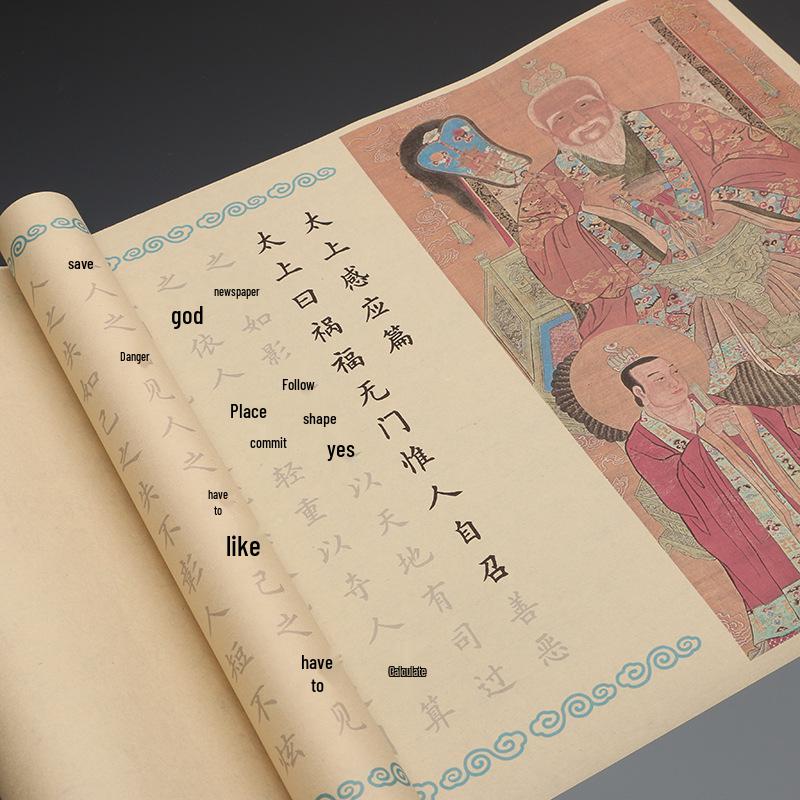 太上感应篇
太上曰祸福无门惟人自召善恶
之 newspaper 如影 Follow shape yes 以天地有司过
之 god 依人 Place commit 轻重以夺人算 Calculate
save 人之 Danger 见人之 have to like 己之 have to 见
人之失如己之失不彰人短不炫